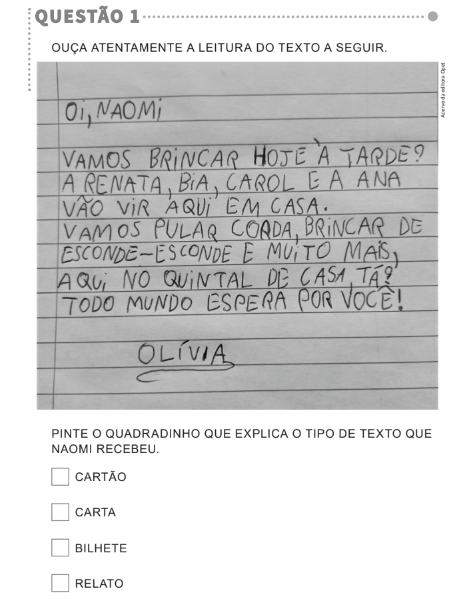 QUESTÃO 1
OUÇA ATENTAMENTE A LEITURA DO TEXTO A SEGUIR.
Acervo da editora Opet
Oi, NAOMi
VAMOS BRiNCAR HOJE À TARDE?
A RENATA, BiA, CAROL E A ANA
VÃO VIR AQUi EM CASA.
VAMOS PULAR CORDA, BRiNCAR DE
ESCONDE-ESCONDE E MUiTO MAiS,
AQUi NO QUiNTAL DE CASA, TÁ?
TODO MUNDO ESPERA POR VOCÊ!
OLÍVIA
PINTE O QUADRADINHO QUE EXPLICA O TIPO DE TEXTO QUE
NAOMI RECEBEU.
CARTÃO
CARTA
BILHETE
RELATO